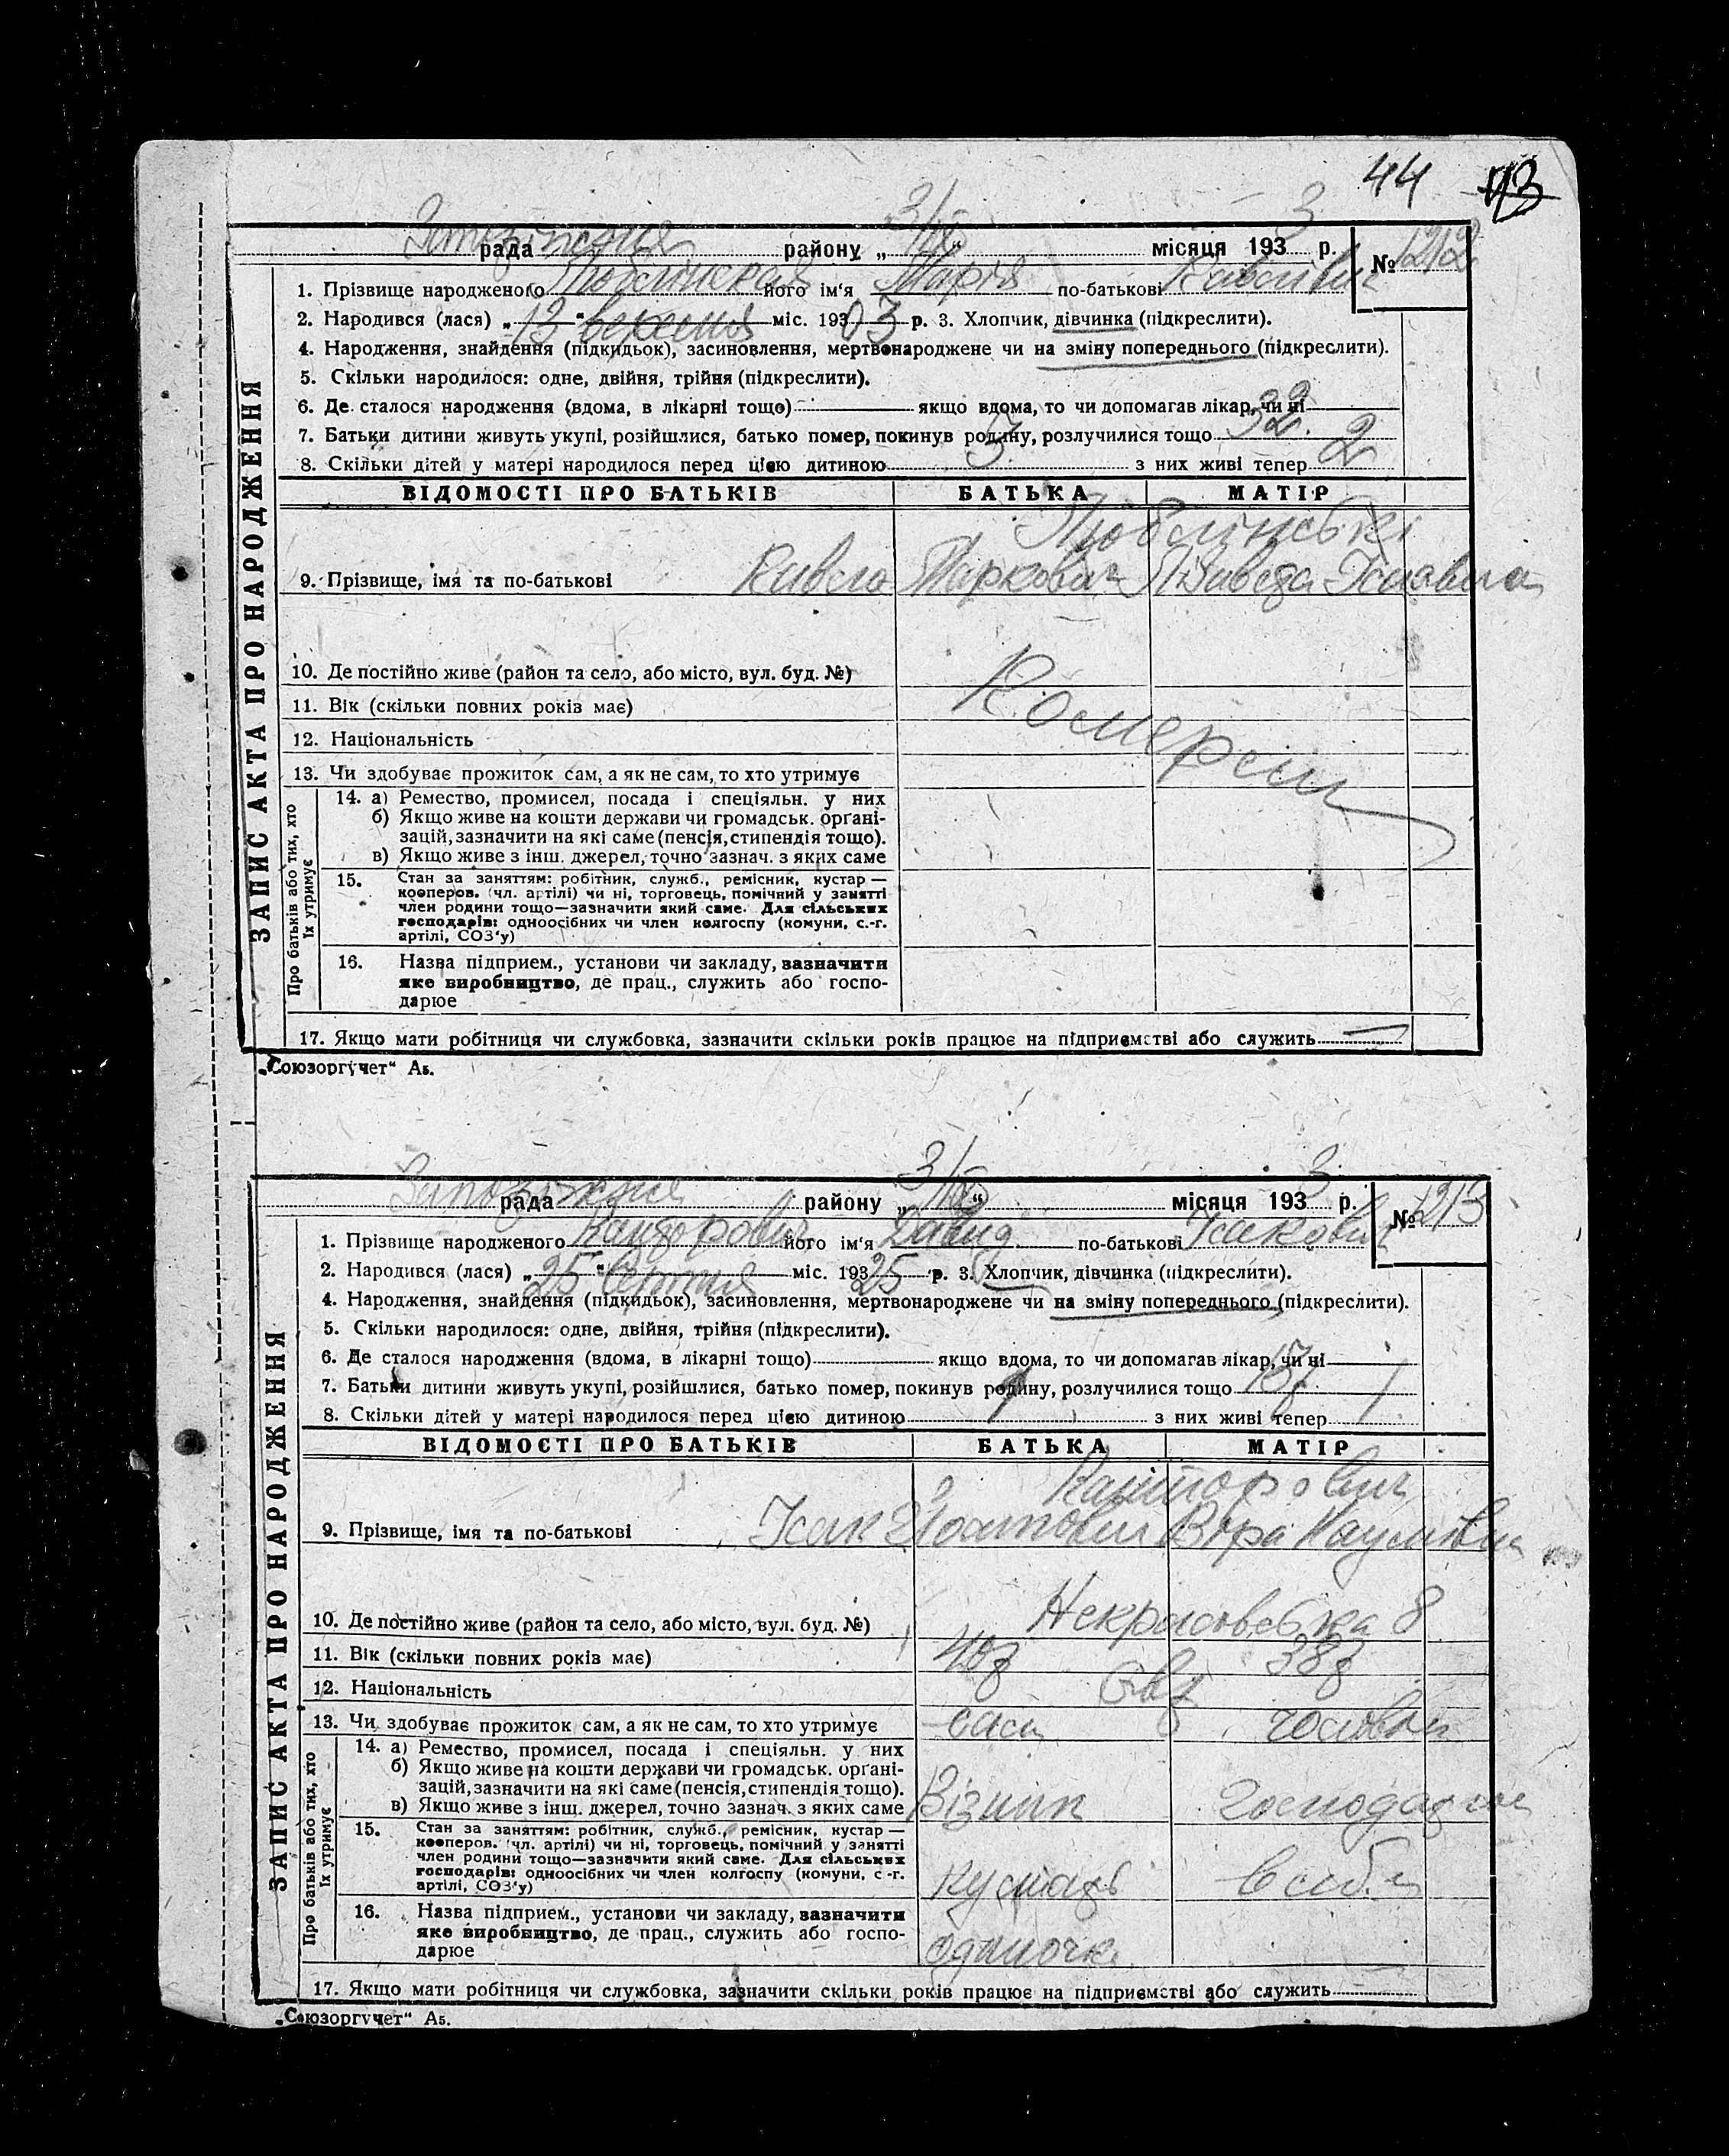 44 113
Запізніння
рада району „3/IX“ місяця 1933 р. № 1212
1. Прізвище народженого Люблінская його ім'я Марія по-батькові
2. Народився (лася) „13“ вересня міс. 19303 р. 3. Хлопчик, дівчинка (підкреслити).
4. Народження, знайдення (підкидьок), засиновлення, мертвонароджене чи на зміну попереднього (підкреслити).
5. Скільки народилося: одне, двійня, трійня (підкреслити).
6. Де сталося народження (вдома, в лікарні тощо) якщо вдома, то чи допомагав лікар, чи ні
7. Батьки дитини живуть укупі, розійшлися, батько помер, покинув родину, розлучилися тощо 32.
8. Скільки дітей у матері народилося перед цією дитиною 3 з них живі тепер 2
ЗАПИС АКТА ПРО НАРОДЖЕННЯ
ВІДОМОСТІ ПРО БАТЬКІВ БАТЬКА МАТІР
Люблінські
9. Прізвище, імя та по-батькові Маркович
10. Де постійно живе (район та село, або місто, вул. буд. №)
11. Вік (скільки повних років має)
12. Національність
13. Чи здобуває прожиток сам, а як не сам, то хто утримує
Про батьків або тих, хто їх утримує
14. а) Ремество, промисел, посада і спеціяльн. у них
б) Якщо живе на кошти держави чи громадськ. орґані-
зацій, зазначити на які саме (пенсія, стипендія тощо).
в) Якщо живе з інш. джерел, точно зазнач. з яких саме
15. Стан за заняттям: робітник, служб., ремісник, кустар —
кооперов. (чл. артілі) чи ні, торговець, помічний у занятті
член родини тощо—зазначити який саме. Для сільських
господарів: одноосібних чи член колгоспу (комуни, с.-г.
артілі, СОЗ'у)
16. Назва підприєм., установи чи закладу, зазначити
яке виробництво, де прац., служить або госпо-
дарює
17. Якщо мати робітниця чи службовка, зазначити скільки років працює на підприємстві або служить —
„Союзоргучет“ А5.
Запізніння
рада району „3/IX“ місяця 1933 р. № 1213
1. Прізвище народженого Канторович його ім'я Давид по-батькові Ісакович
2. Народився (лася) „25“ Серпня міс. 19325 р. 3. Хлопчик, дівчинка (підкреслити).
4. Народження, знайдення (підкидьок), засиновлення, мертвонароджене чи на зміну попереднього (підкреслити).
5. Скільки народилося: одне, двійня, трійня (підкреслити).
6. Де сталося народження (вдома, в лікарні тощо) якщо вдома, то чи допомагав лікар, чи ні
7. Батьки дитини живуть укупі, розійшлися, батько помер, покинув родину, розлучилися тощо
8. Скільки дітей у матері народилося перед цією дитиною 1 з них живі тепер 1
ЗАПИС АКТА ПРО НАРОДЖЕННЯ
ВІДОМОСТІ ПРО БАТЬКІВ БАТЬКА МАТІР
Канторович
9. Прізвище, імя та по-батькові Ісак Віра Наумівна
10. Де постійно живе (район та село, або місто, вул. буд. №) Некрасовська 8
11. Вік (скільки повних років має) 40р 38р
12. Національність Євр
13. Чи здобуває прожиток сам, а як не сам, то хто утримує сам чоловік
Про батьків або тих, хто їх утримує
14. а) Ремество, промисел, посада і спеціяльн. у них
б) Якщо живе на кошти держави чи громадськ. орґані-
зацій, зазначити на які саме (пенсія, стипендія тощо).
в) Якщо живе з інш. джерел, точно зазнач. з яких саме Візник
15. Стан за заняттям: робітник, служб., ремісник, кустар —
кооперов. (чл. артілі) чи ні, торговець, помічний у занятті
член родини тощо—зазначити який саме. Для сільських
господарів: одноосібних чи член колгоспу (комуни, с.-г.
артілі, СОЗ'у) кустарь
16. Назва підприєм., установи чи закладу, зазначити
яке виробництво, де прац., служить або госпо-
дарює одиночк.
17. Якщо мати робітниця чи службовка, зазначити скільки років працює на підприємстві або служить
„Союзоргучет“ А5.